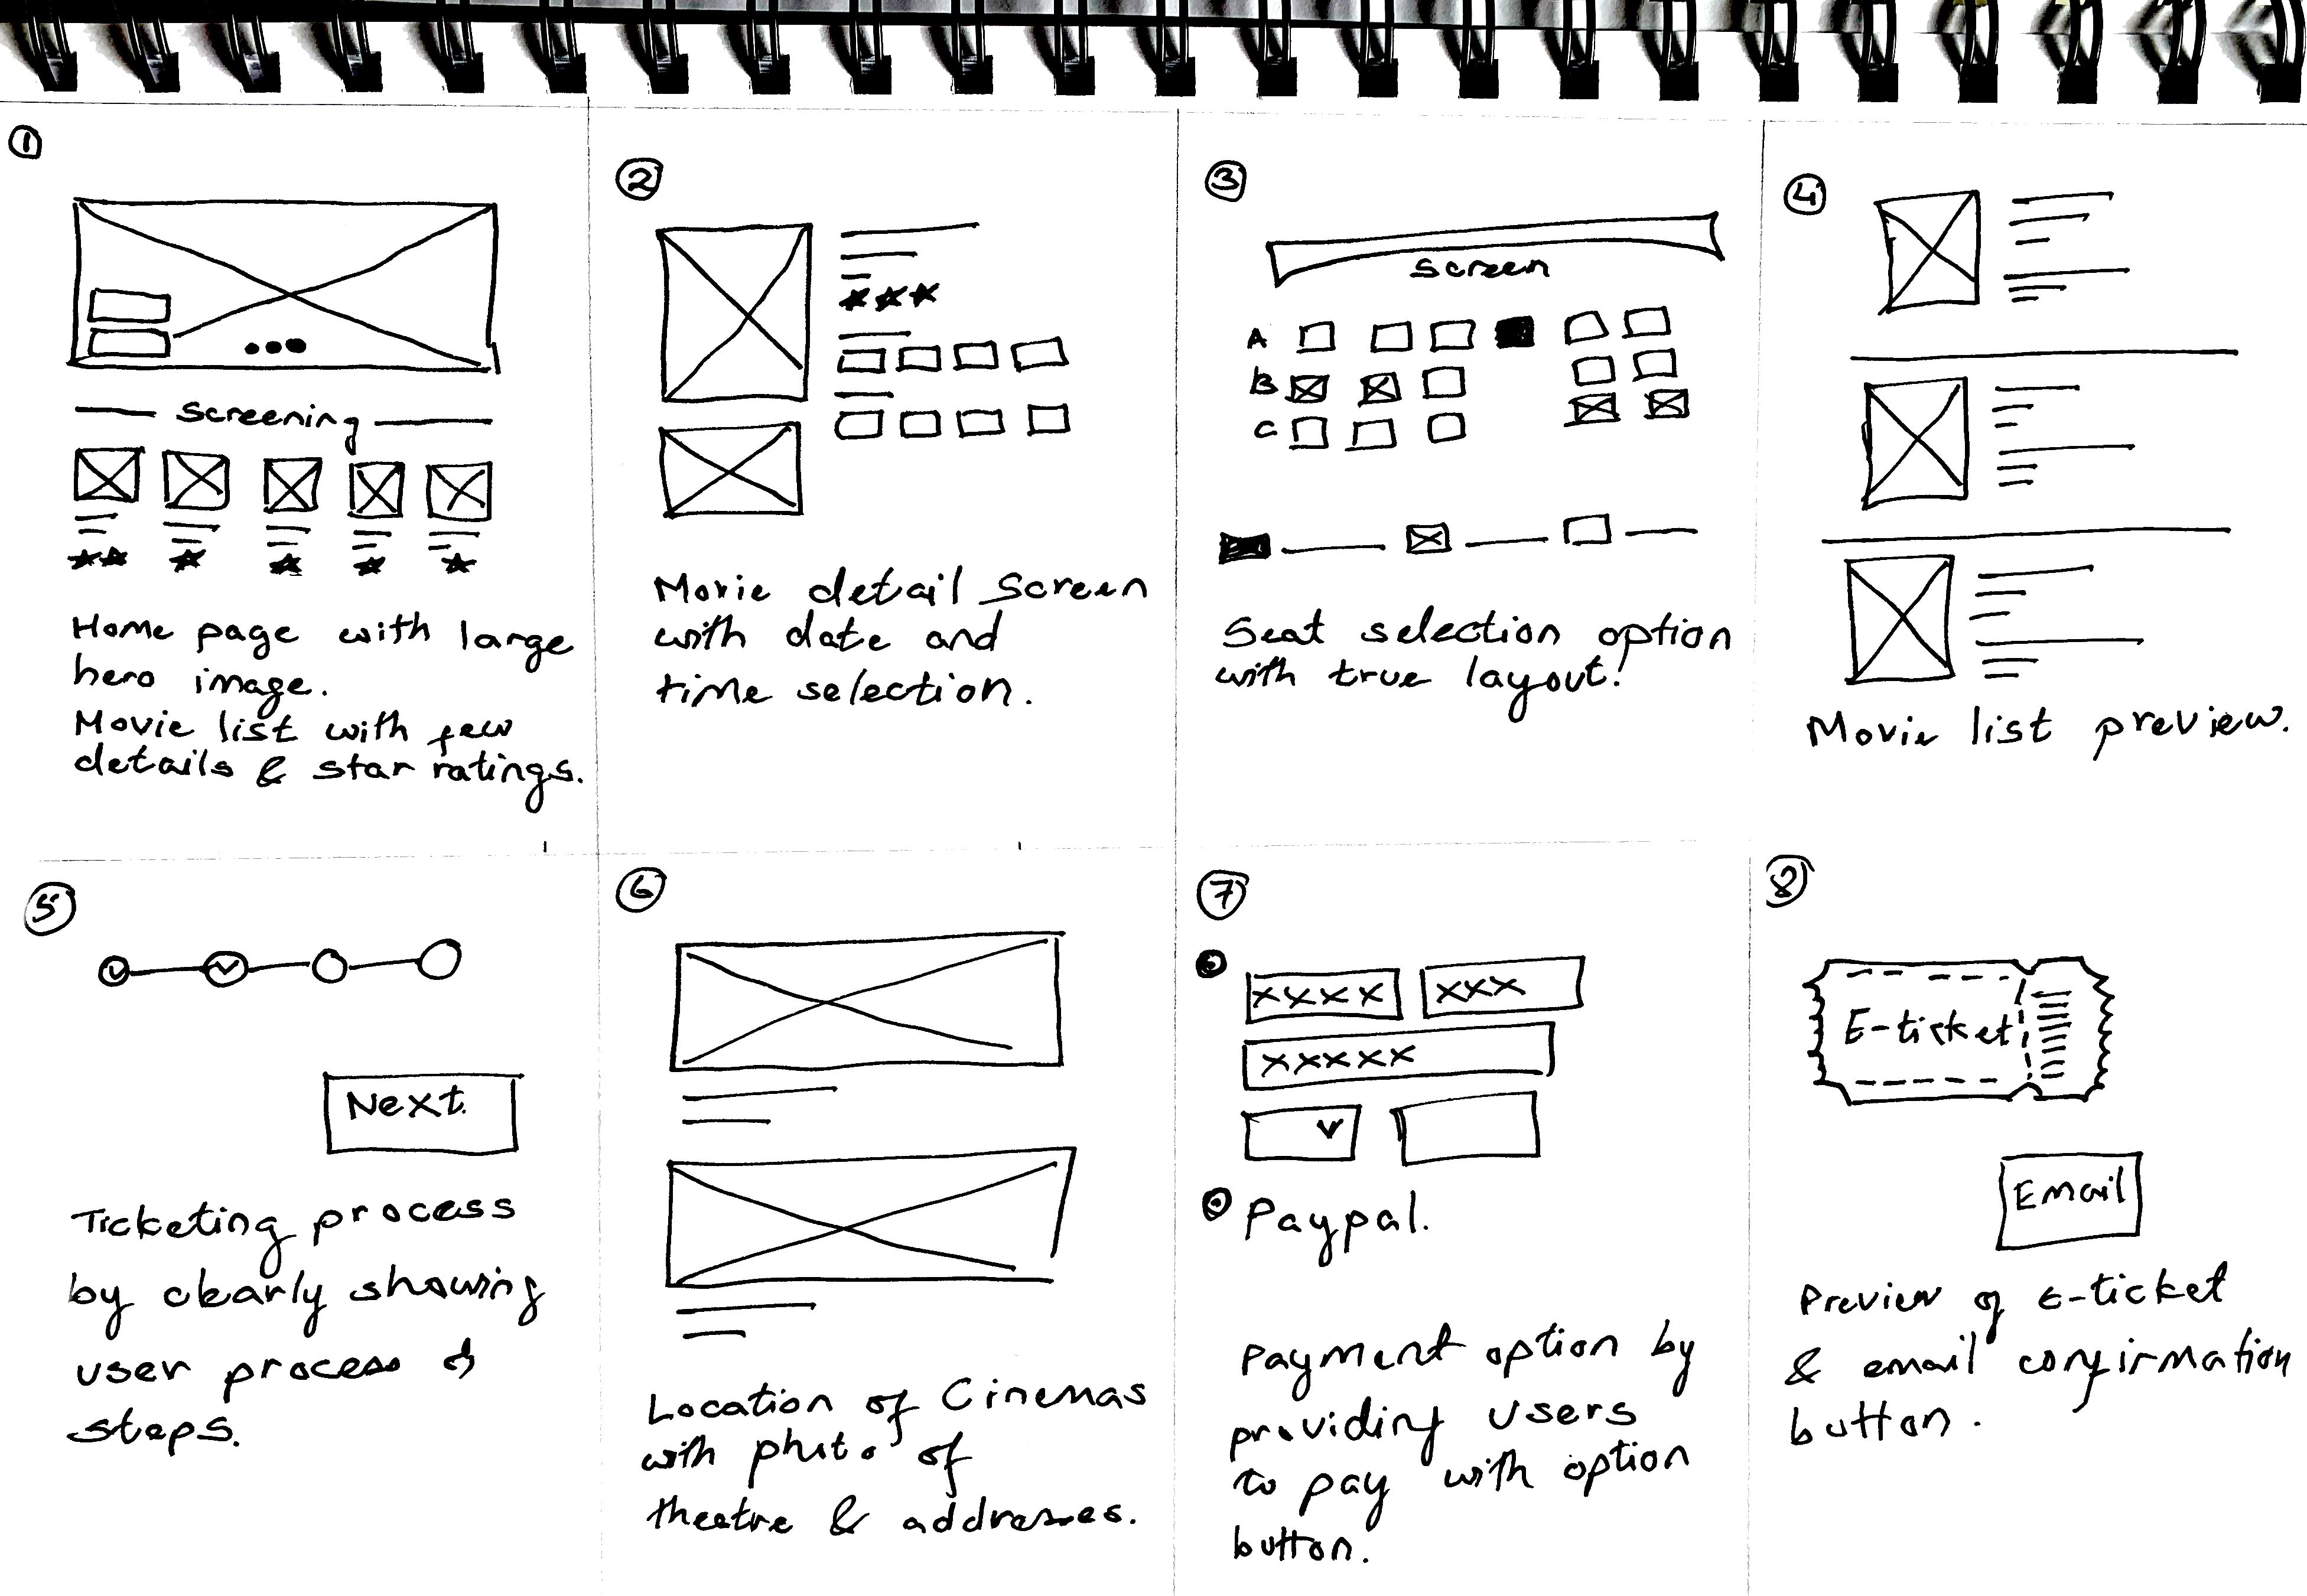 1
Screening
Home page with large
hero image.
Movie list with few
details & star ratings.
2
Movie detail screen
with date and
time selection.
3
Screen
A
B
C
Seat selection option
with true layout!
4
Movie list preview.
5
Next.
Ticketing process
by clearly showing
user process &
steps.
6
Location of Cinemas
with photo of
theatre & addresses.
7
XXXX XXX
XXXXX
Paypal.
Payment option by
providing users
to pay with option
button.
8
E-ticket
Email
Preview of E-ticket
& email confirmation
button.